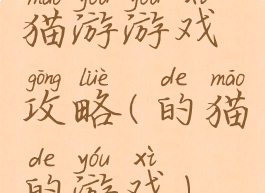 māo yóu yóu xì
猫游游戏
gōng lüè de māo
攻略(的猫
de yóu xì
的游戏)